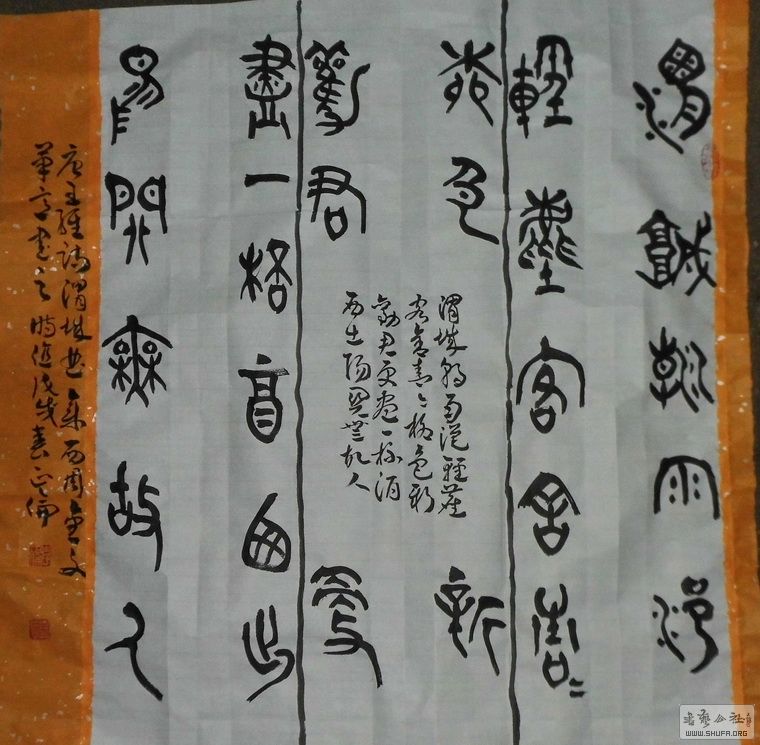 渭城朝雨浥
輕塵客舍青=
柳色新
勸君更
盡一桮酒西出
陽關無故人
渭城朝雨浥輕塵
客舍青々柳色新
勸君更盡一杯酒
西出陽關無故人
唐王維詩渭城曲集西周金文
筆意書之時值戊戌春
WWW.SHUFA.ORG